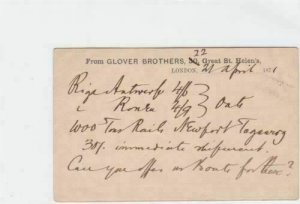 From GLOVER BROTHERS, 22 Great St. Helen's,
LONDON, 21 April 1871
Riga Antwerp 4/6 } Oats
" Rouen 4/9 }
1000 Tons Rails Newport Taganrog
30/- immediate shipment.
Can you offer us boats for these?